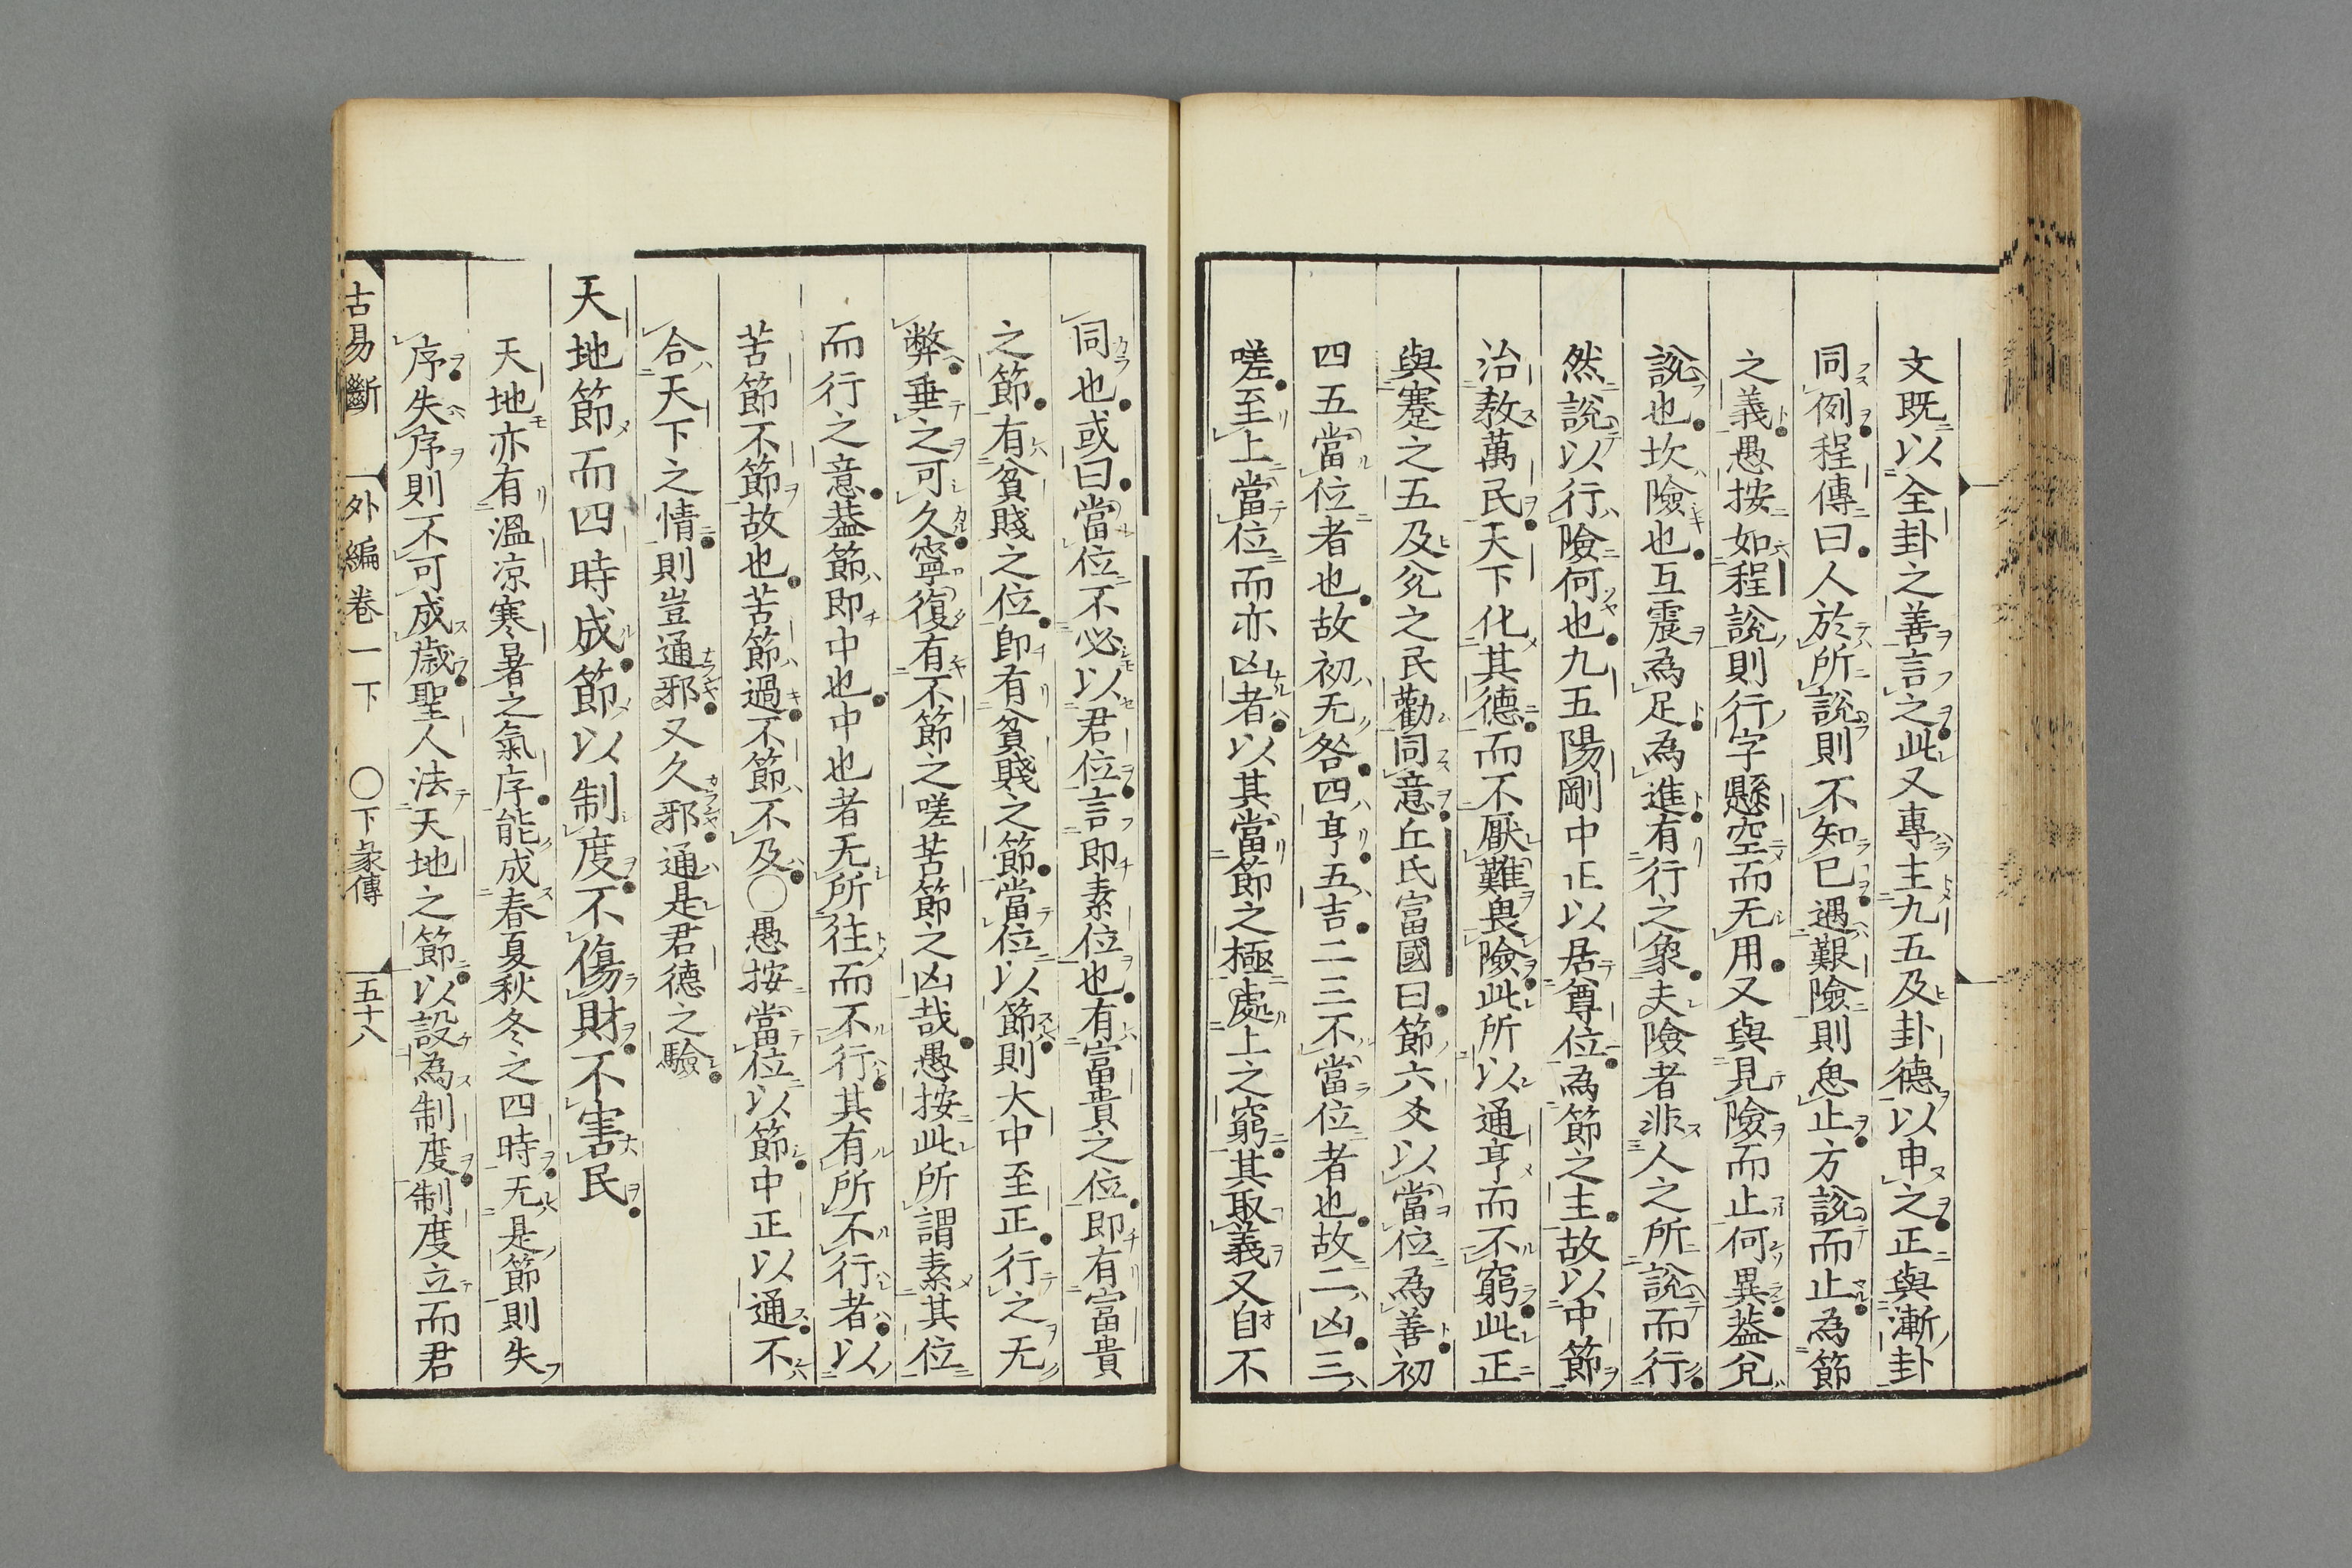 文既以全卦之善言之此又專主九五及卦德以申之正與漸卦
同例程傳曰人於所說則不知已遇艱險則思止方說而止為節
之義愚按如程說則行字懸空而无用又與見險而止何異蓋兌
說也坎險也互震為足為進有行之象夫險者非人之所說而行
然說以行險何也九五陽剛中正以居尊位為節之主故以中節
治教萬民天下化其德而不厭難畏險此所以通亨而不窮此正
與蹇之五及兌之民勸同意丘氏富國曰節六爻以當位為善初
四五當位者也故初无咎四亨五吉二三不當位者也故二凶三
嗟至上當位而亦凶者以其當節之極處上之窮其取義又自不
同也或曰當位不必以君位言即素位也有富貴之位即有富貴
之節有貧賤之位即有貧賤之節當位以節則大中至正行之无
弊垂之可久寧復有不節之嗟苦節之凶哉愚按此所謂素其位
而行之意蓋節即中也中也者无所往而不行其有所不行者以
苦節不節故也苦節過不節不及〇愚按當位以節中正以通不
合天下之情則豈通邪又久邪通是君德之驗
天地節而四時成節以制度不傷財不害民
天地亦有溫凉寒暑之氣序能成春夏秋冬之四時无是節則失
序失序則不可成歲聖人法天地之節以設為制度制度立而君
古易斷 外編卷一下 〇下彖傳 五十八